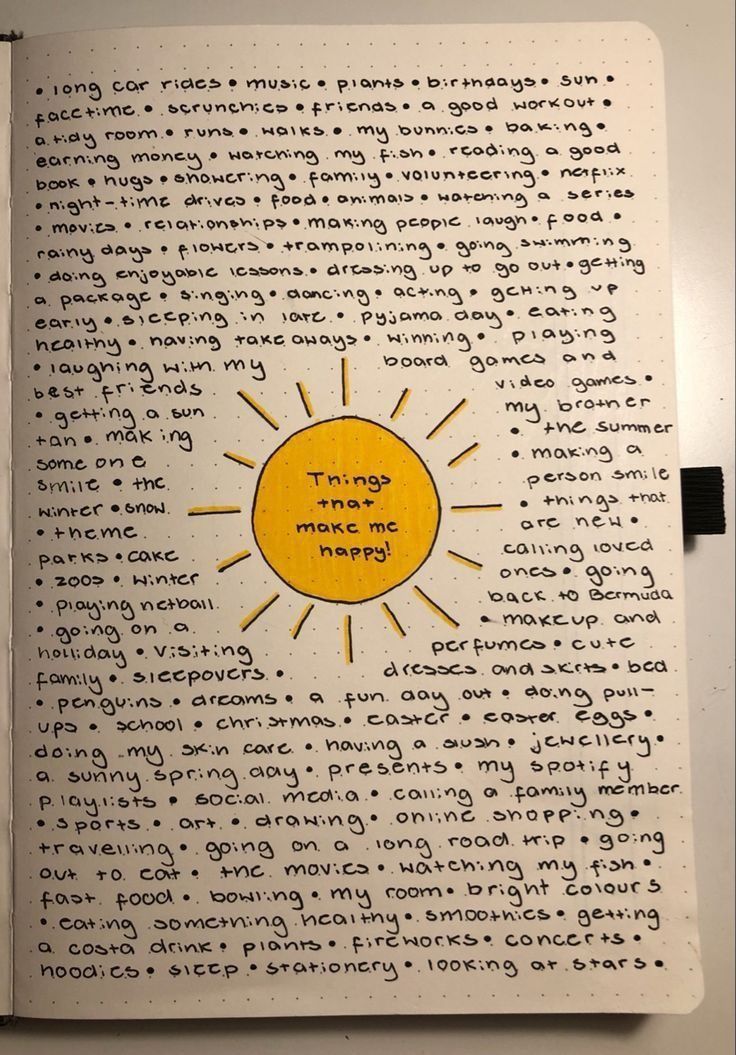 • long car rides • music • plants • birthdays • sun •
facetime • scrunchies • friends • a good workout •
a tidy room • runs • walks • my bunnies • baking •
earning money • watching my fish • reading a good
book • hugs • showering • family • volunteering • netflix
• night-time drives • food • animals • watching a series
• movies • relationships • making people laugh • food •
rainy days • flowers • trampolining • going swimming
• doing enjoyable lessons • dressing up to go out • getting
a package • singing • dancing • acting • getting up
early • sleeping in late • pyjama day • eating
healthy • having take aways • winning • playing
• laughing with my board games and
best friends video games •
• getting a sun my brother
tan • making • the summer
some one • making a
smile • the person smile
winter • snow • things that
• theme are new •
parks • cake calling loved
• 2009 • winter ones • going
• playing netball back to Bermuda
• going on a • makeup and
holliday • visiting perfumes • cute
family • sleepovers • dresses and skirts • bed
Things
that
make me
happy!
• penguins • dreams • a fun day out • doing pull-
ups • school • christmas • easter • easter eggs •
doing my skin care • having a slush • jewellery •
a sunny spring day • presents • my spotify
playlists • social media • calling a family member
• sports • art • drawing • online shopping •
travelling • going on a long road trip • going
out to eat • the movies • watching my fish •
fast food • bowling • my room • bright colours
• eating something healthy • smoothies • getting
a costa drink • plants • fireworks • concerts •
hoodies • sleep • stationery • looking at stars •